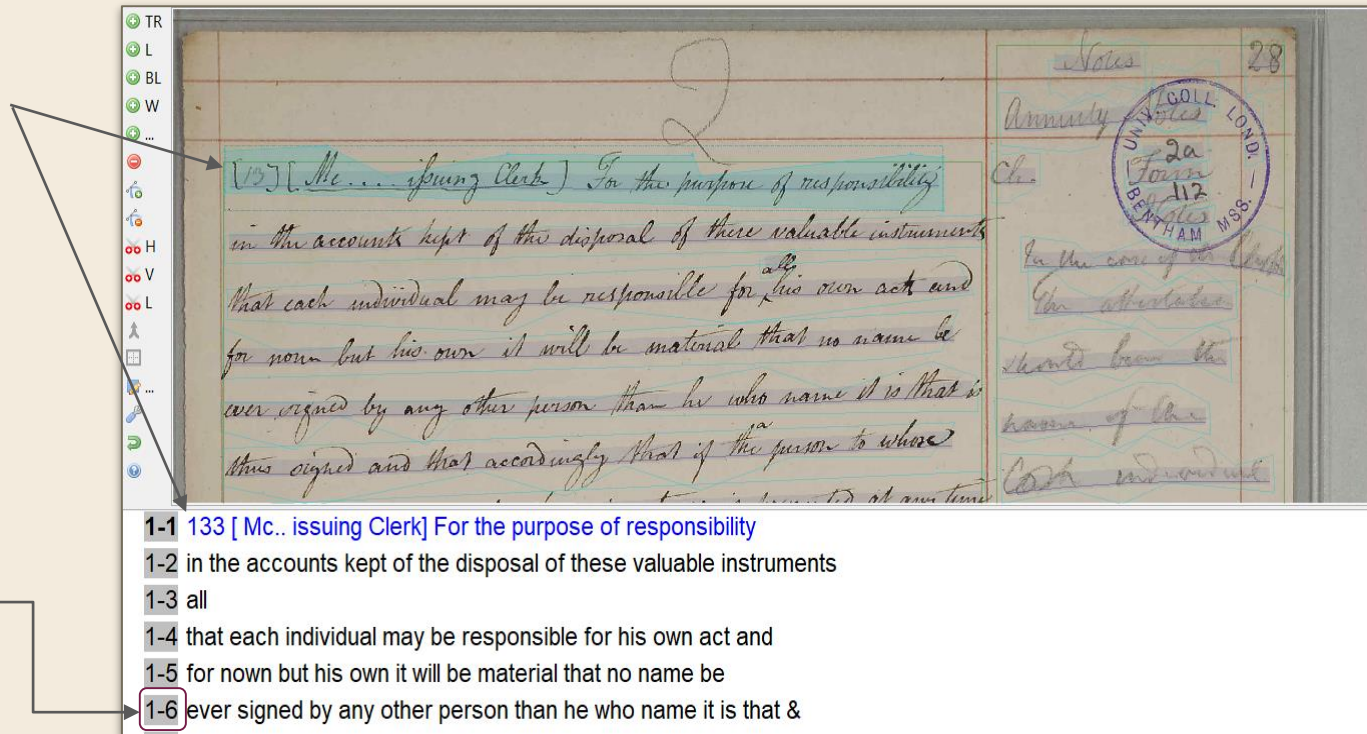 TR
L
BL
W
...
H
V
L
...
2
28
[13] [Mc.... issuing Clerk] For the purpose of responsibility
in the accounts kept of the disposal of these valuable instruments
all
that each individual may be responsible for his own act and
for nown but his own it will be material that no name be
ever signed by any other person than he who name it is that is
a
thus signed and that accordingly that if the person to whose
at any time
Notes
Annuity Notes
Ch.
2a
Form
112
Notes
UNIV. COLL. LOND.
BENTHAM MSS.
In the case of
the attestation
should bear the
name of the
individual
1-1 133 [ Mc.. issuing Clerk] For the purpose of responsibility
1-2 in the accounts kept of the disposal of these valuable instruments
1-3 all
1-4 that each individual may be responsible for his own act and
1-5 for nown but his own it will be material that no name be
1-6 ever signed by any other person than he who name it is that &